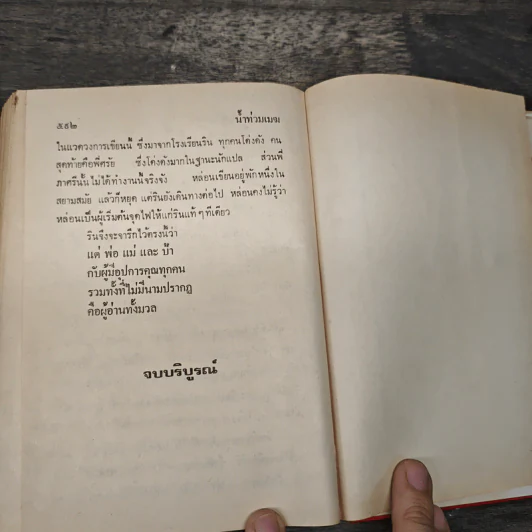 ๕๕๒ น้ำท่วมเมฆ
ในแวดวงการเขียนนี้ ซึ่งมาจากโรงเรียนริน ทุกคนโด่งดัง คน
สุดท้ายคือพี่ศรัย ซึ่งโด่งดังมากในฐานะนักแปล ส่วนพี่
ภาศรีนั้นไม่ได้ทำงานนี้จริงจัง หล่อนเขียนอยู่พักหนึ่งใน
สยามสมัย แล้วก็หยุด แต่รินยังเดินทางต่อไป หล่อนคงไม่รู้ว่า
หล่อนเป็นผู้เริ่มต้นจุดไฟให้แก่รินแท้ ๆ ทีเดียว
รินจึงจะจารึกไว้ตรงนี้ว่า
แด่ พ่อ แม่ และ ป้า
กับผู้มีอุปการคุณทุกคน
รวมทั้งที่ไม่มีนามปรากฏ
คือผู้อ่านทั้งมวล
จบบริบูรณ์